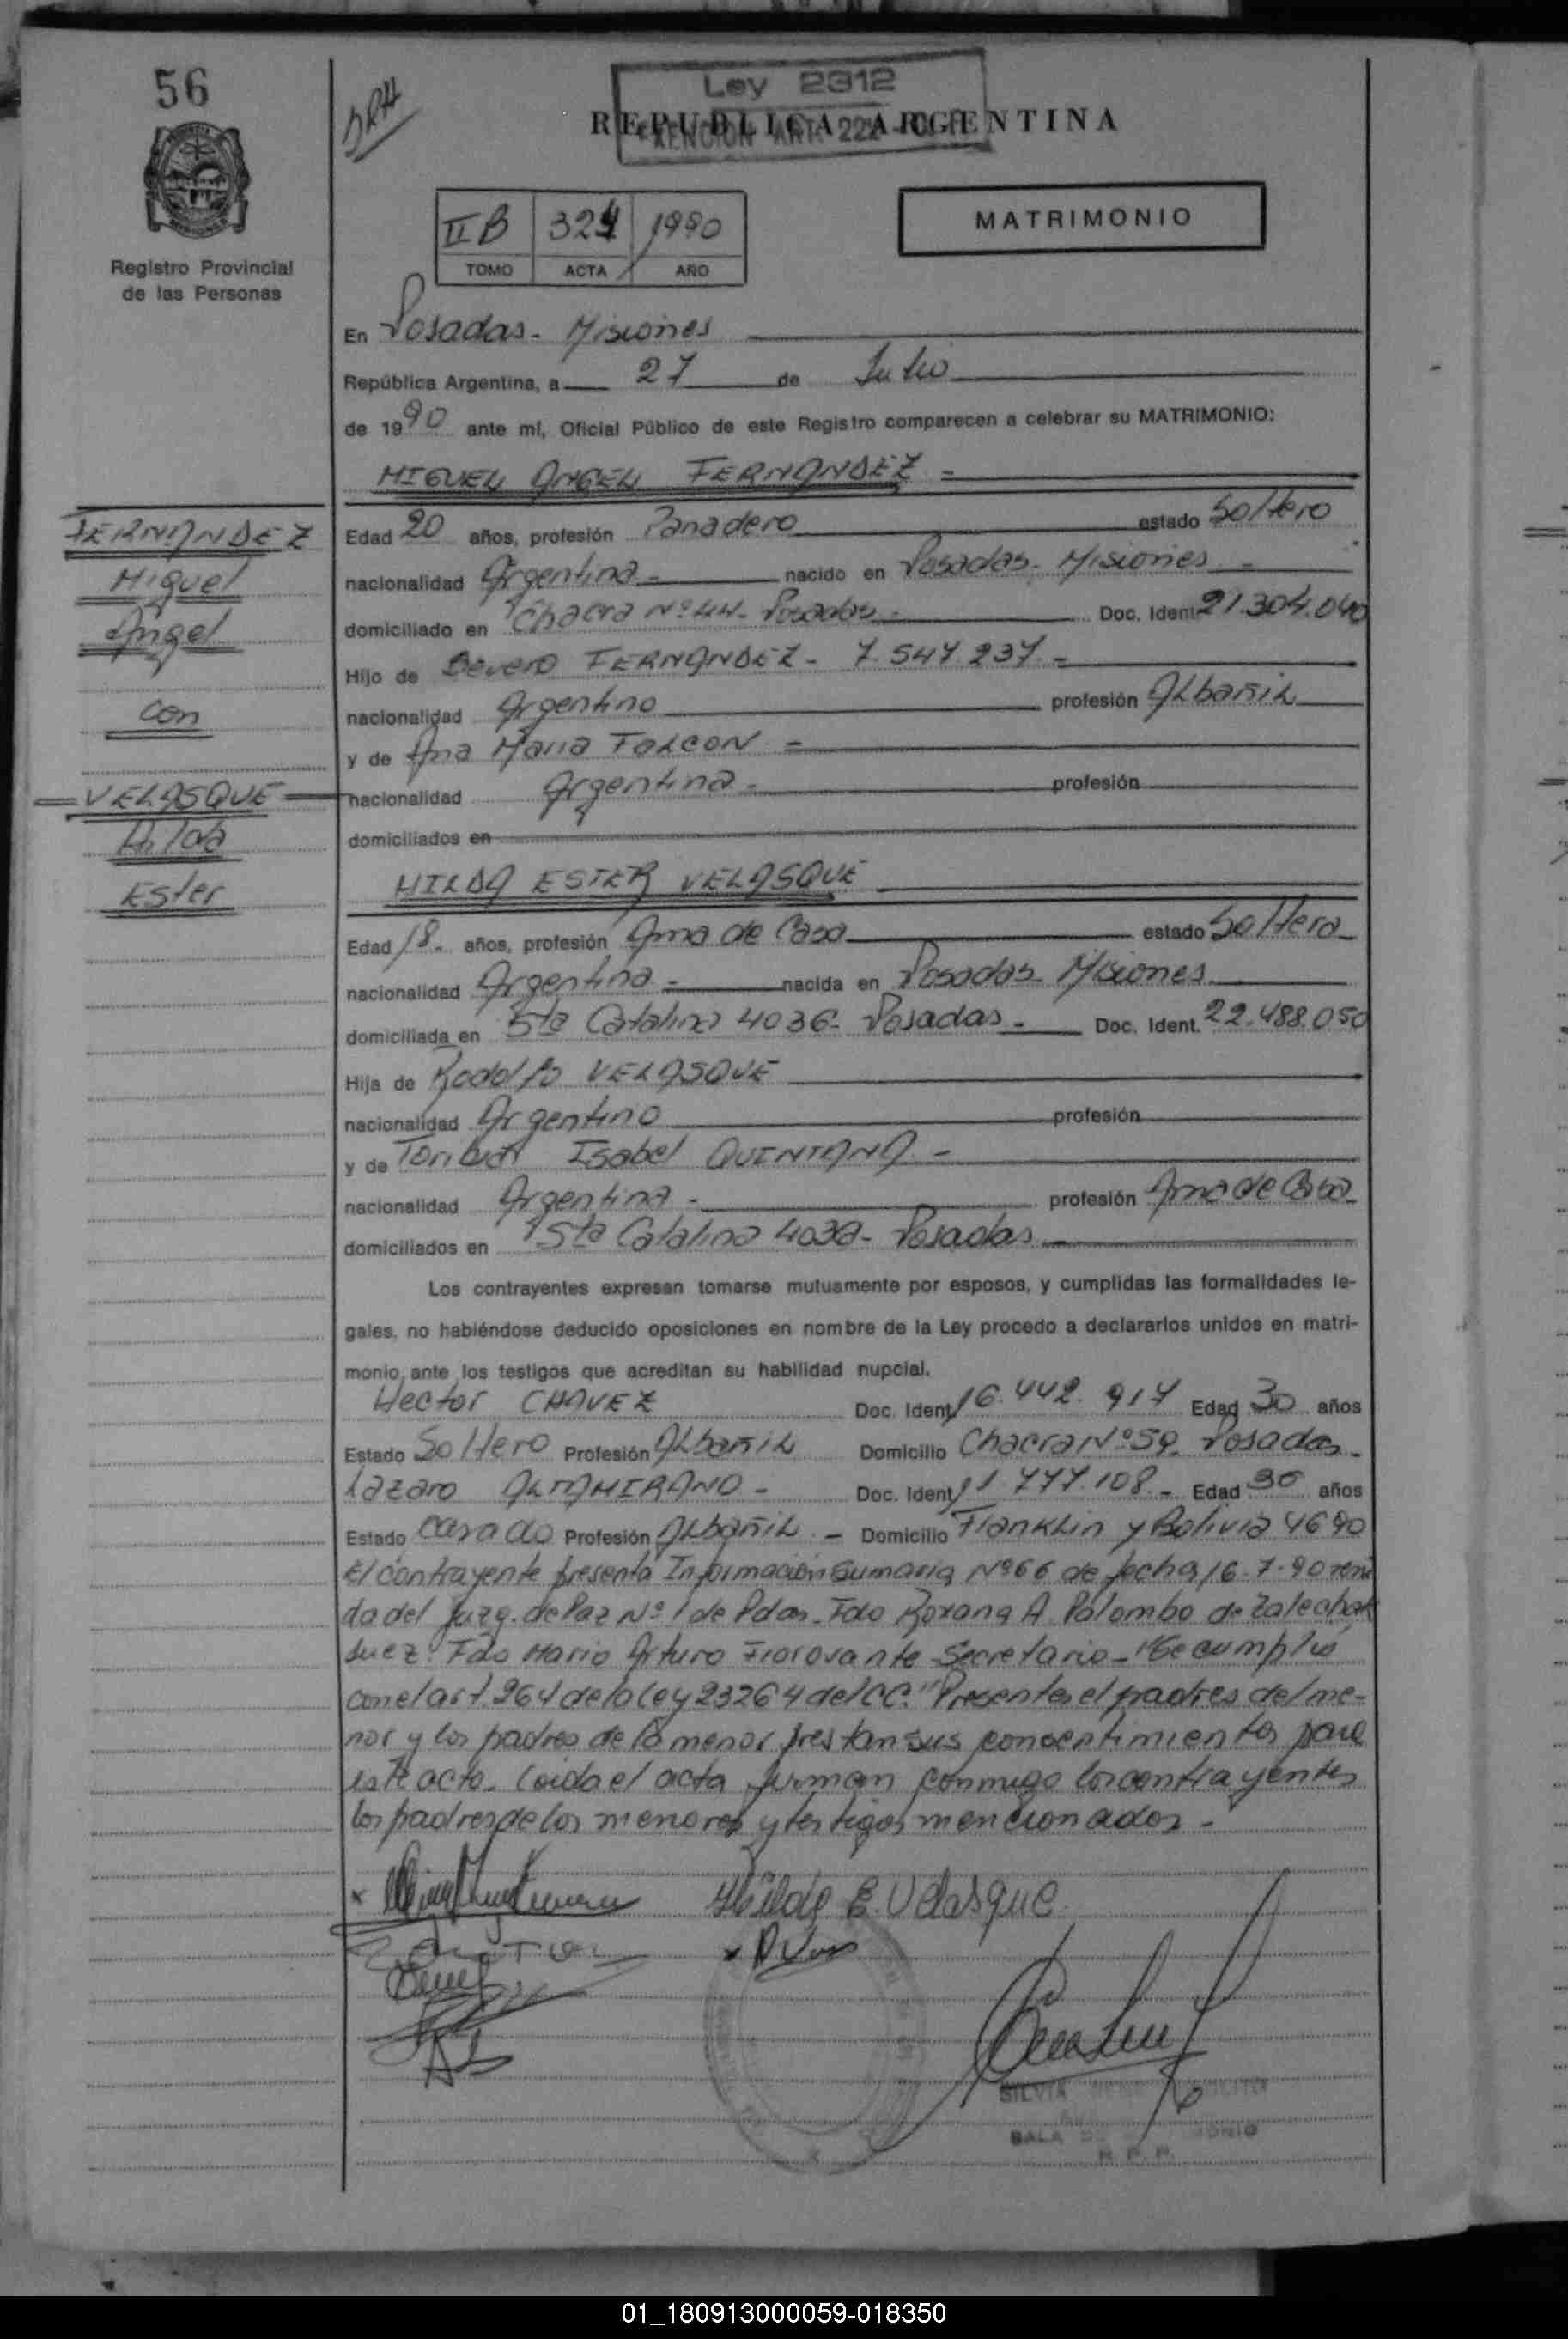 56
DRH
Ley 2312
EXENCION ART. 222
REPUBLICA ARGENTINA
Registro Provincial
de las Personas
II B 324 1990
TOMO ACTA AÑO
MATRIMONIO
En Posadas - Misiones
República Argentina, a 27 de Julio
de 1990 ante mí, Oficial Público de este Registro comparecen a celebrar su MATRIMONIO:
MIGUEL ANGEL FERNANDEZ =
FERNANDEZ
Miguel
Ángel
con
VELASQUE
Hilda
Ester
Edad 20 años, profesión Panadero estado Soltero
nacionalidad Argentina - nacido en Posadas - Misiones -
domiciliado en Chacra Nº 44 - Posadas - Doc. Ident. 21.304.040
Hijo de Severo FERNANDEZ - 7.547.237 =
nacionalidad Argentino profesión Albañil
y de Ana Maria FALCON =
nacionalidad Argentina - profesión
domiciliados en
HILDA ESTER VELASQUE
Edad 18 - años, profesión Ama de Casa estado Soltera
nacionalidad Argentina - nacida en Posadas - Misiones
domiciliada en Sta Catalina 4036 - Posadas - Doc. Ident. 22.488.050
Hija de Rodolfo VELASQUE
nacionalidad Argentino profesión
y de Toribia Isabel QUINTANA -
nacionalidad Argentina - profesión Ama de Casa
domiciliados en Sta Catalina 4036 - Posadas -
Los contrayentes expresan tomarse mutuamente por esposos, y cumplidas las formalidades le-
gales, no habiéndose deducido oposiciones en nombre de la Ley procedo a declararlos unidos en matri-
monio ante los testigos que acreditan su habilidad nupcial.
Hector CHAVEZ Doc. Ident. 16.442.917 Edad 30 años
Estado Soltero Profesión Albañil Domicilio Chacra Nº 59. Posadas -
Lazaro ALTAMIRANO - Doc. Ident. 11.777.108 - Edad 30 años
Estado Casado Profesión Albañil - Domicilio Franklin y Bolivia 4690
El contrayente presenta Informacion Sumaria Nº 66 de fecha 16-7-90 remi
da del Juzg. de Paz Nº 1 de Pdas - Fdo Roxana A. Palombo de
Juez. Fdo Mario Arturo Fiorovante - Secretario - "Se cumplió
con el art. 264 de la ley 23264 del CC." Presentes el padres del me-
nor y los padres de la menor prestan sus consentimientos para
este acto. Leida el acta firman conmigo los contrayentes
los padres de los menores y testigos mencionados -
Hilda E. Velasque
SILVIA
SALA
R. P. P.
01_180913000059-018350